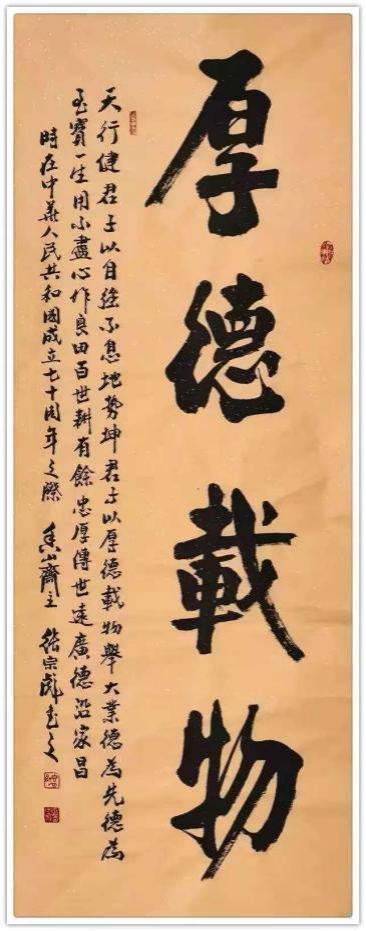 厚德載物
天行健君子以自强不息地勢坤君子以厚德載物舉大業德為先德為
至寶一生用不盡心作良田百世耕有餘忠厚傳世遠廣德沿家昌
時在中華人民共和國成立七十周年之際 香山齋主 張宗彪書之